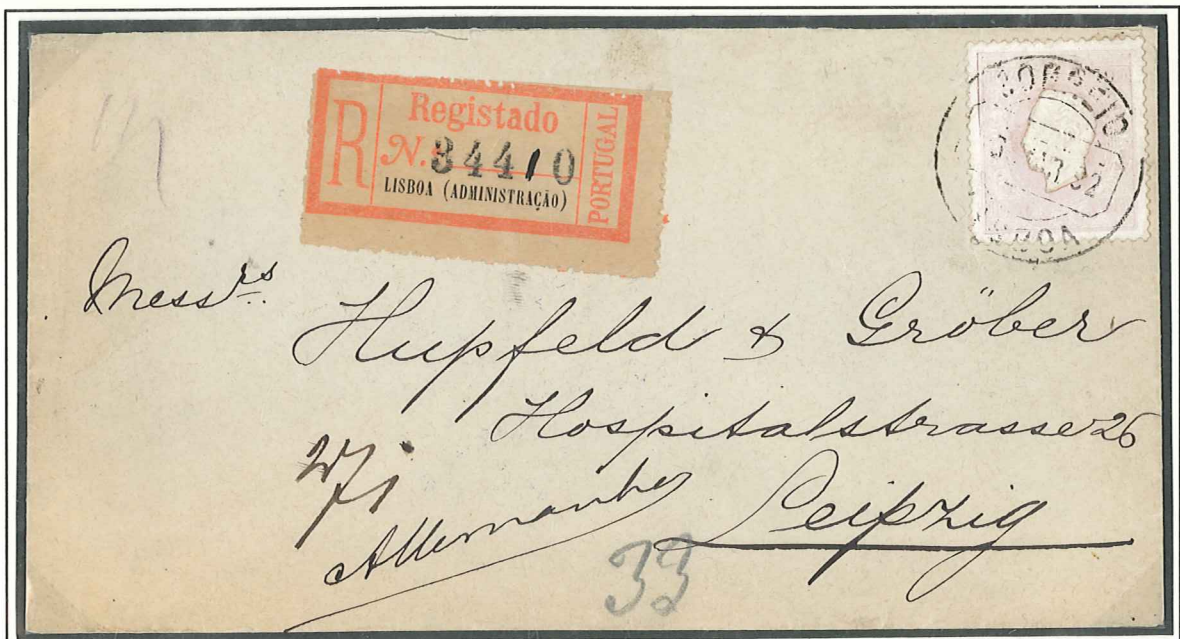 R
Registado
N. 34410
LISBOA (ADMINISTRAÇÃO)
PORTUGAL
CORREIO
92
LISBOA
Mess<sup>rs</sup>
Hupfeld & Gröber
Hospitalstrasse 26
Leipzig
Allemanha
33